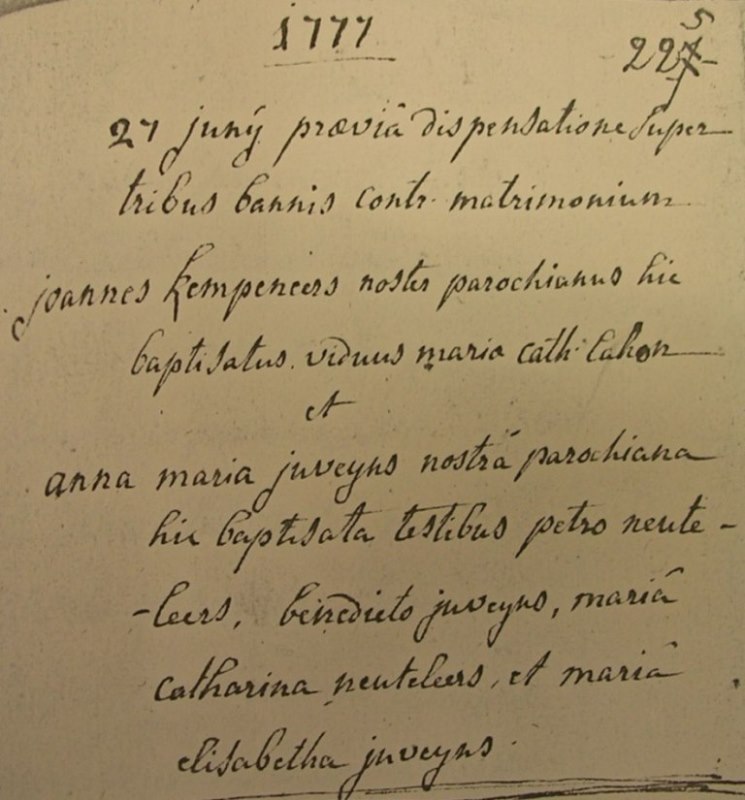 1777
225
27 juny præviâ dispensatione super
tribus bannis contr. matrimonium
joannes kempeneers noster parochianus hic
baptisatus viduus maria cath. Cahon
et
anna maria juveyns nostrâ parochiana
hic baptisata testibus petro neute-
-leers, benedicto juveyns, mariâ
catharina neuteleers, et mariâ
elisabetha juveyns.